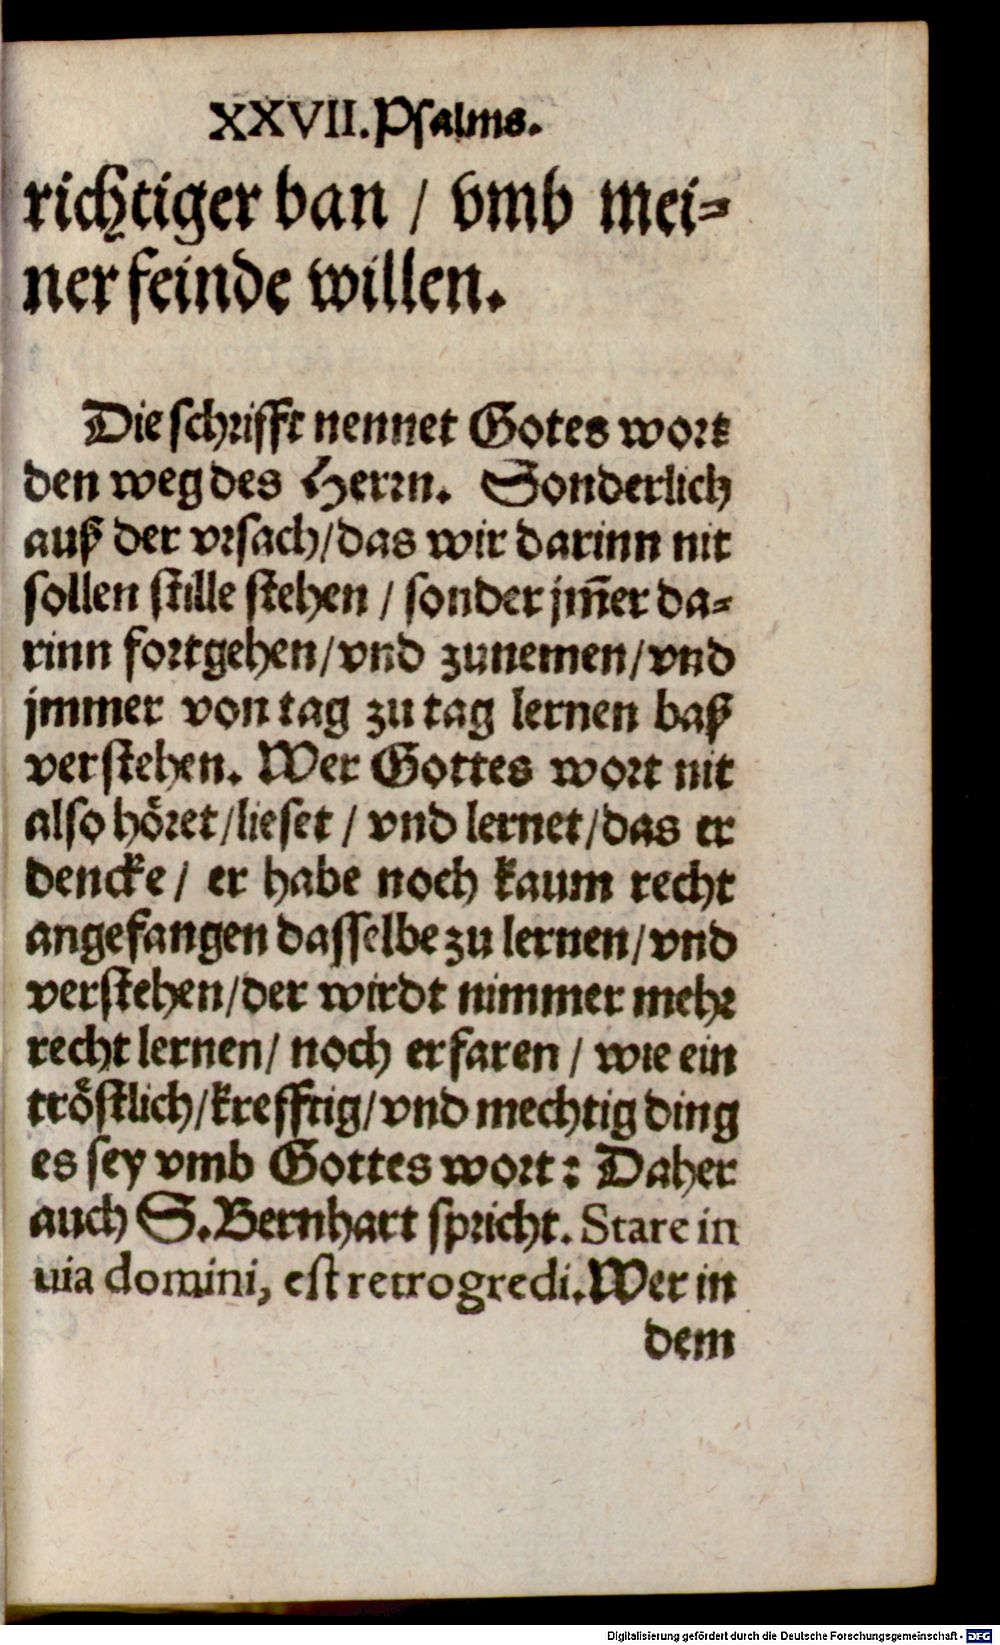 XXVII. Psalms.
richtiger ban / vmb mei=
ner feinde willen.
Die schrifft nennet Gotes wort
den weg des Herrn. Sonderlich
auß der vrsach/das wir darinn nit
sollen stille stehen / sonder jm̃er da=
rinn fortgehen/vnd zunemen/vnd
jmmer von tag zu tag lernen baß
verstehen. Wer Gottes wort nit
also höret/lieset / vnd lernet/das er
dencke / er habe noch kaum recht
angefangen dasselbe zu lernen/vnd
verstehen/der wirdt nimmer mehr
recht lernen/ noch erfaren / wie ein
tröstlich/krefftig/vnd mechtig ding
es sey vmb Gottes wort: Daher
auch S. Bernhart spricht. Stare in
uia domini, est retrogredi. Wer in
dem
Digitalisierung gefördert durch die Deutsche Forschungsgemeinschaft - DFG